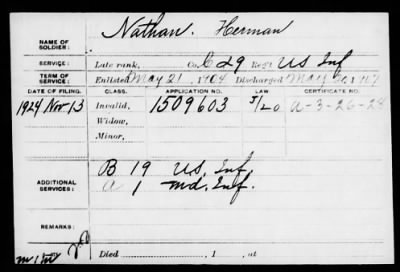 NAME OF SOLDIER: Nathan. Herman
SERVICE: Late rank, Co. C 29 Reg't US Inf
TERM OF SERVICE: Enlisted May 21, 1904 Discharged May 20, 1907
DATE OF FILING. CLASS. APPLICATION NO. LAW CERTIFICATE NO.
1924 Nov 13 Invalid, 1509603 5/20 a-3-26-28
Widow,
Minor,
ADDITIONAL SERVICES: B 19 U.S. Inf.
a 1 Md. Inf.
REMARKS:
Died , 1 , at